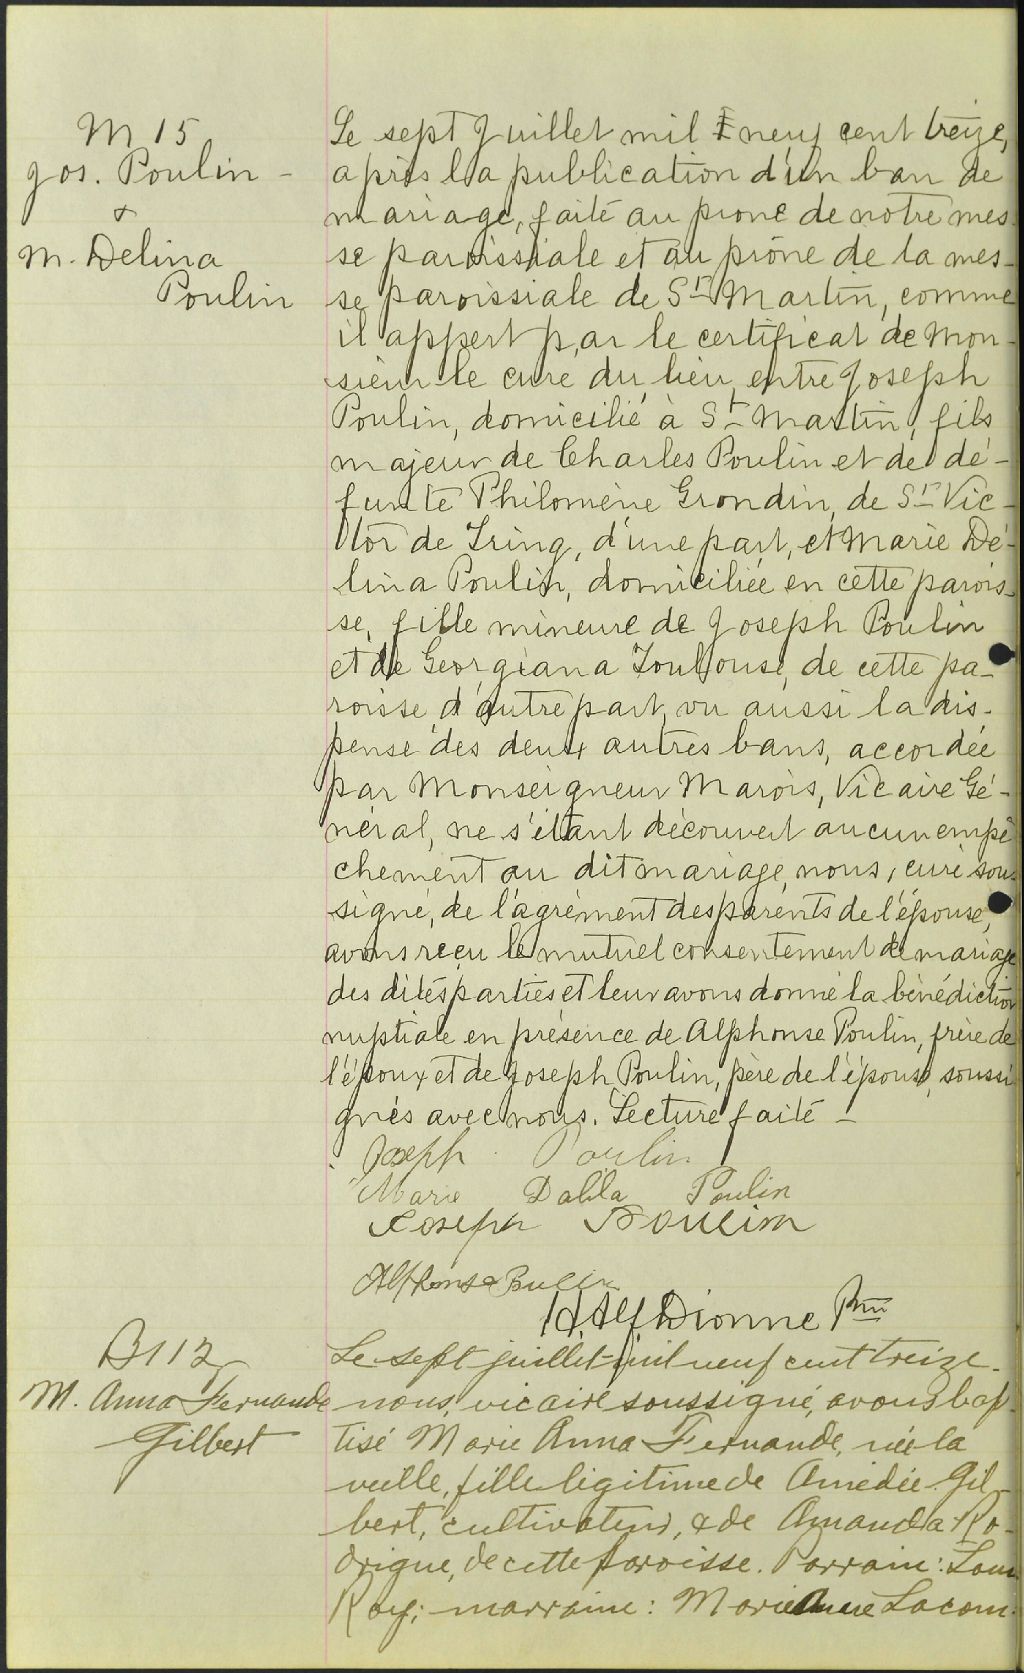 M 15
Jos. Poulin -
&
M. Delina
Poulin
Le sept Juillet mil neuf cent treize,
après la publication d'un ban de
mariage, faite au prone de notre mes-
se paroissiale et au prône de la mes-
se paroissiale de St Martin, comme
il appert par le certificat de Mon-
sieur le curé du lieu, entre Joseph
Poulin, domicilié à St Martin, fils
majeur de Charles Poulin et de dé-
funte Philomène Grondin, de St Vic-
tor de Tring, d'une part, et Marie Dé-
lina Poulin, domiciliée en cette parois-
se, fille mineure de Joseph Poulin
et de Georgiana Toulouse, de cette pa-
roisse, d'autre part, vu aussi la dis-
pense des deux autres bans, accordée
par Monseigneur Marois, Vicaire Gé-
néral, ne s'étant découvert aucun empê
chement au dit mariage, nous, curé sous
signé, de l'agrément des parents de l'épouse,
avons reçu le mutuel consentement de mariage
des dites parties et leur avons donné la bénédiction
nuptiale en présence de Alphonse Poulin, frère de
l'époux et de Joseph Poulin, père de l'épouse, soussi
gnés avec nous. Lecture faite -
Joseph Poulin
Marie Dalila Poulin
Joseph Poulin
Alphonse Poulin
H. Alf Dionne Ptre
B 112
M. Anna Fernande
Gilbert
Le sept juillet mil neuf cent treize
nous, vicaire soussigné, avons bap-
tisé Marie Anna Fernande, née la
veille, fille légitime de Amédée Gil-
bert, cultivateur, & de Amanda Ro-
drigue, de cette paroisse. Parrain: Louis
Roy; marraine: Marie Anne Lacom-